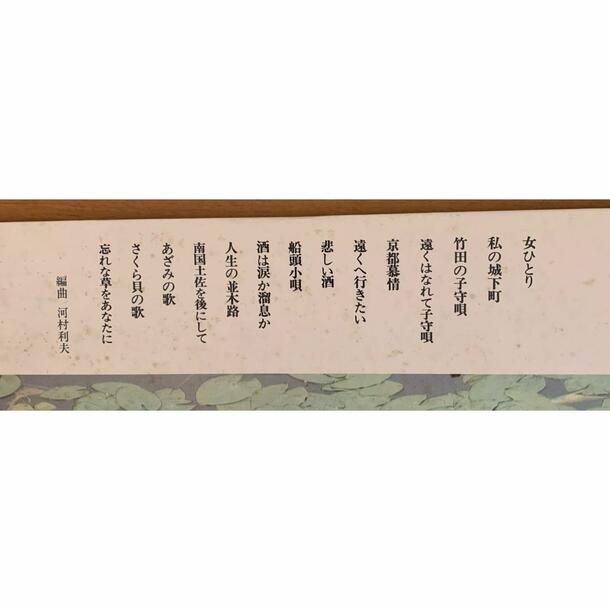 女ひとり
私の城下町
竹田の子守唄
遠くはなれて子守唄
京都慕情
遠くへ行きたい
悲しい酒
船頭小唄
酒は涙か溜息か
人生の並木路
南国土佐を後にして
あざみの歌
さくら貝の歌
忘れな草をあなたに
編曲 河村利夫